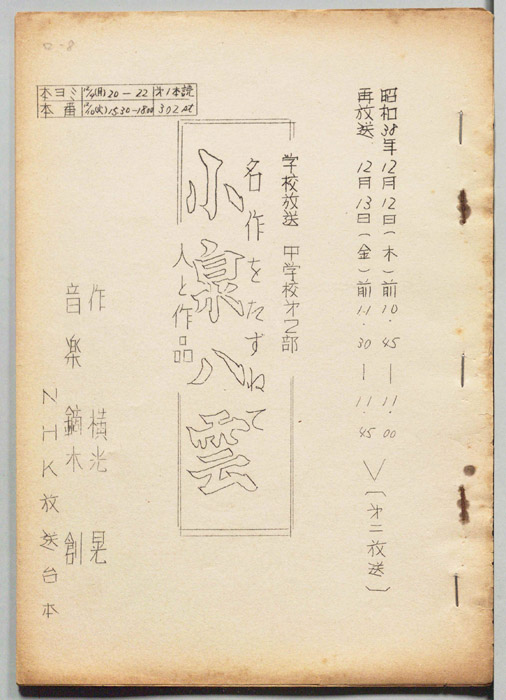 本ヨミ 12/9(月)20-22 第1本読
本番 12/10(火)15.30-18.00 302st
昭和38年12月12日(木)前10.45-11.00
再放送 12月13日(金)前11.30-11.45
〔第二放送〕
学校放送 中学校第2部
名作をたずねて
小泉八雲
人と作品
作 横光 晃
音楽 鏑木 創
NHK放送台本